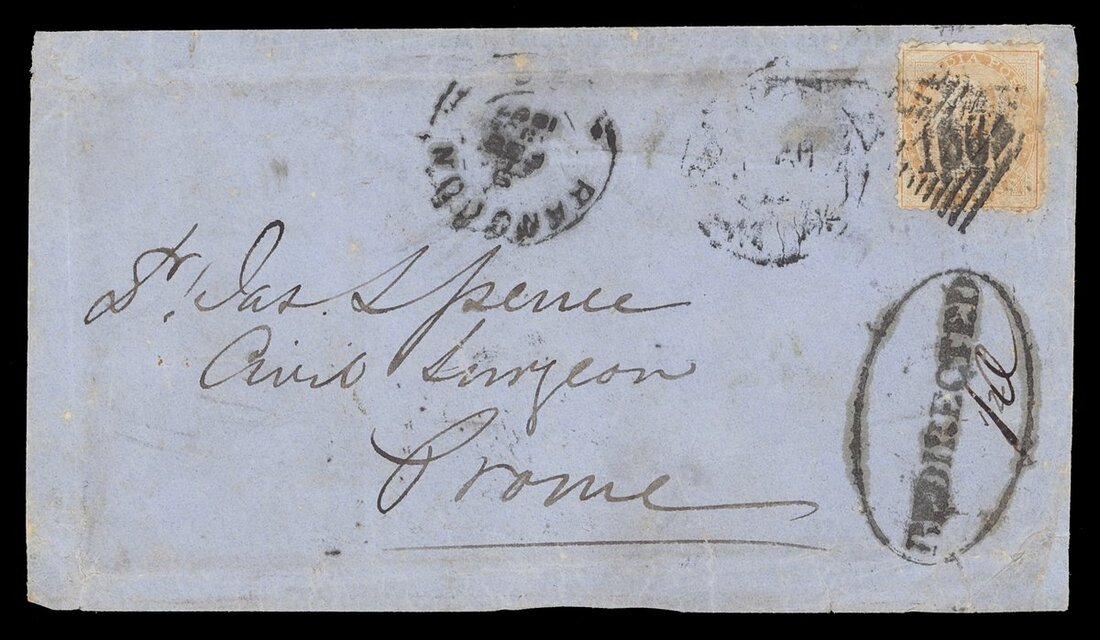 RANGOON
INDIA POS
Dr. Jas. Spence
Civil Surgeon
Prome
REDIRECTED